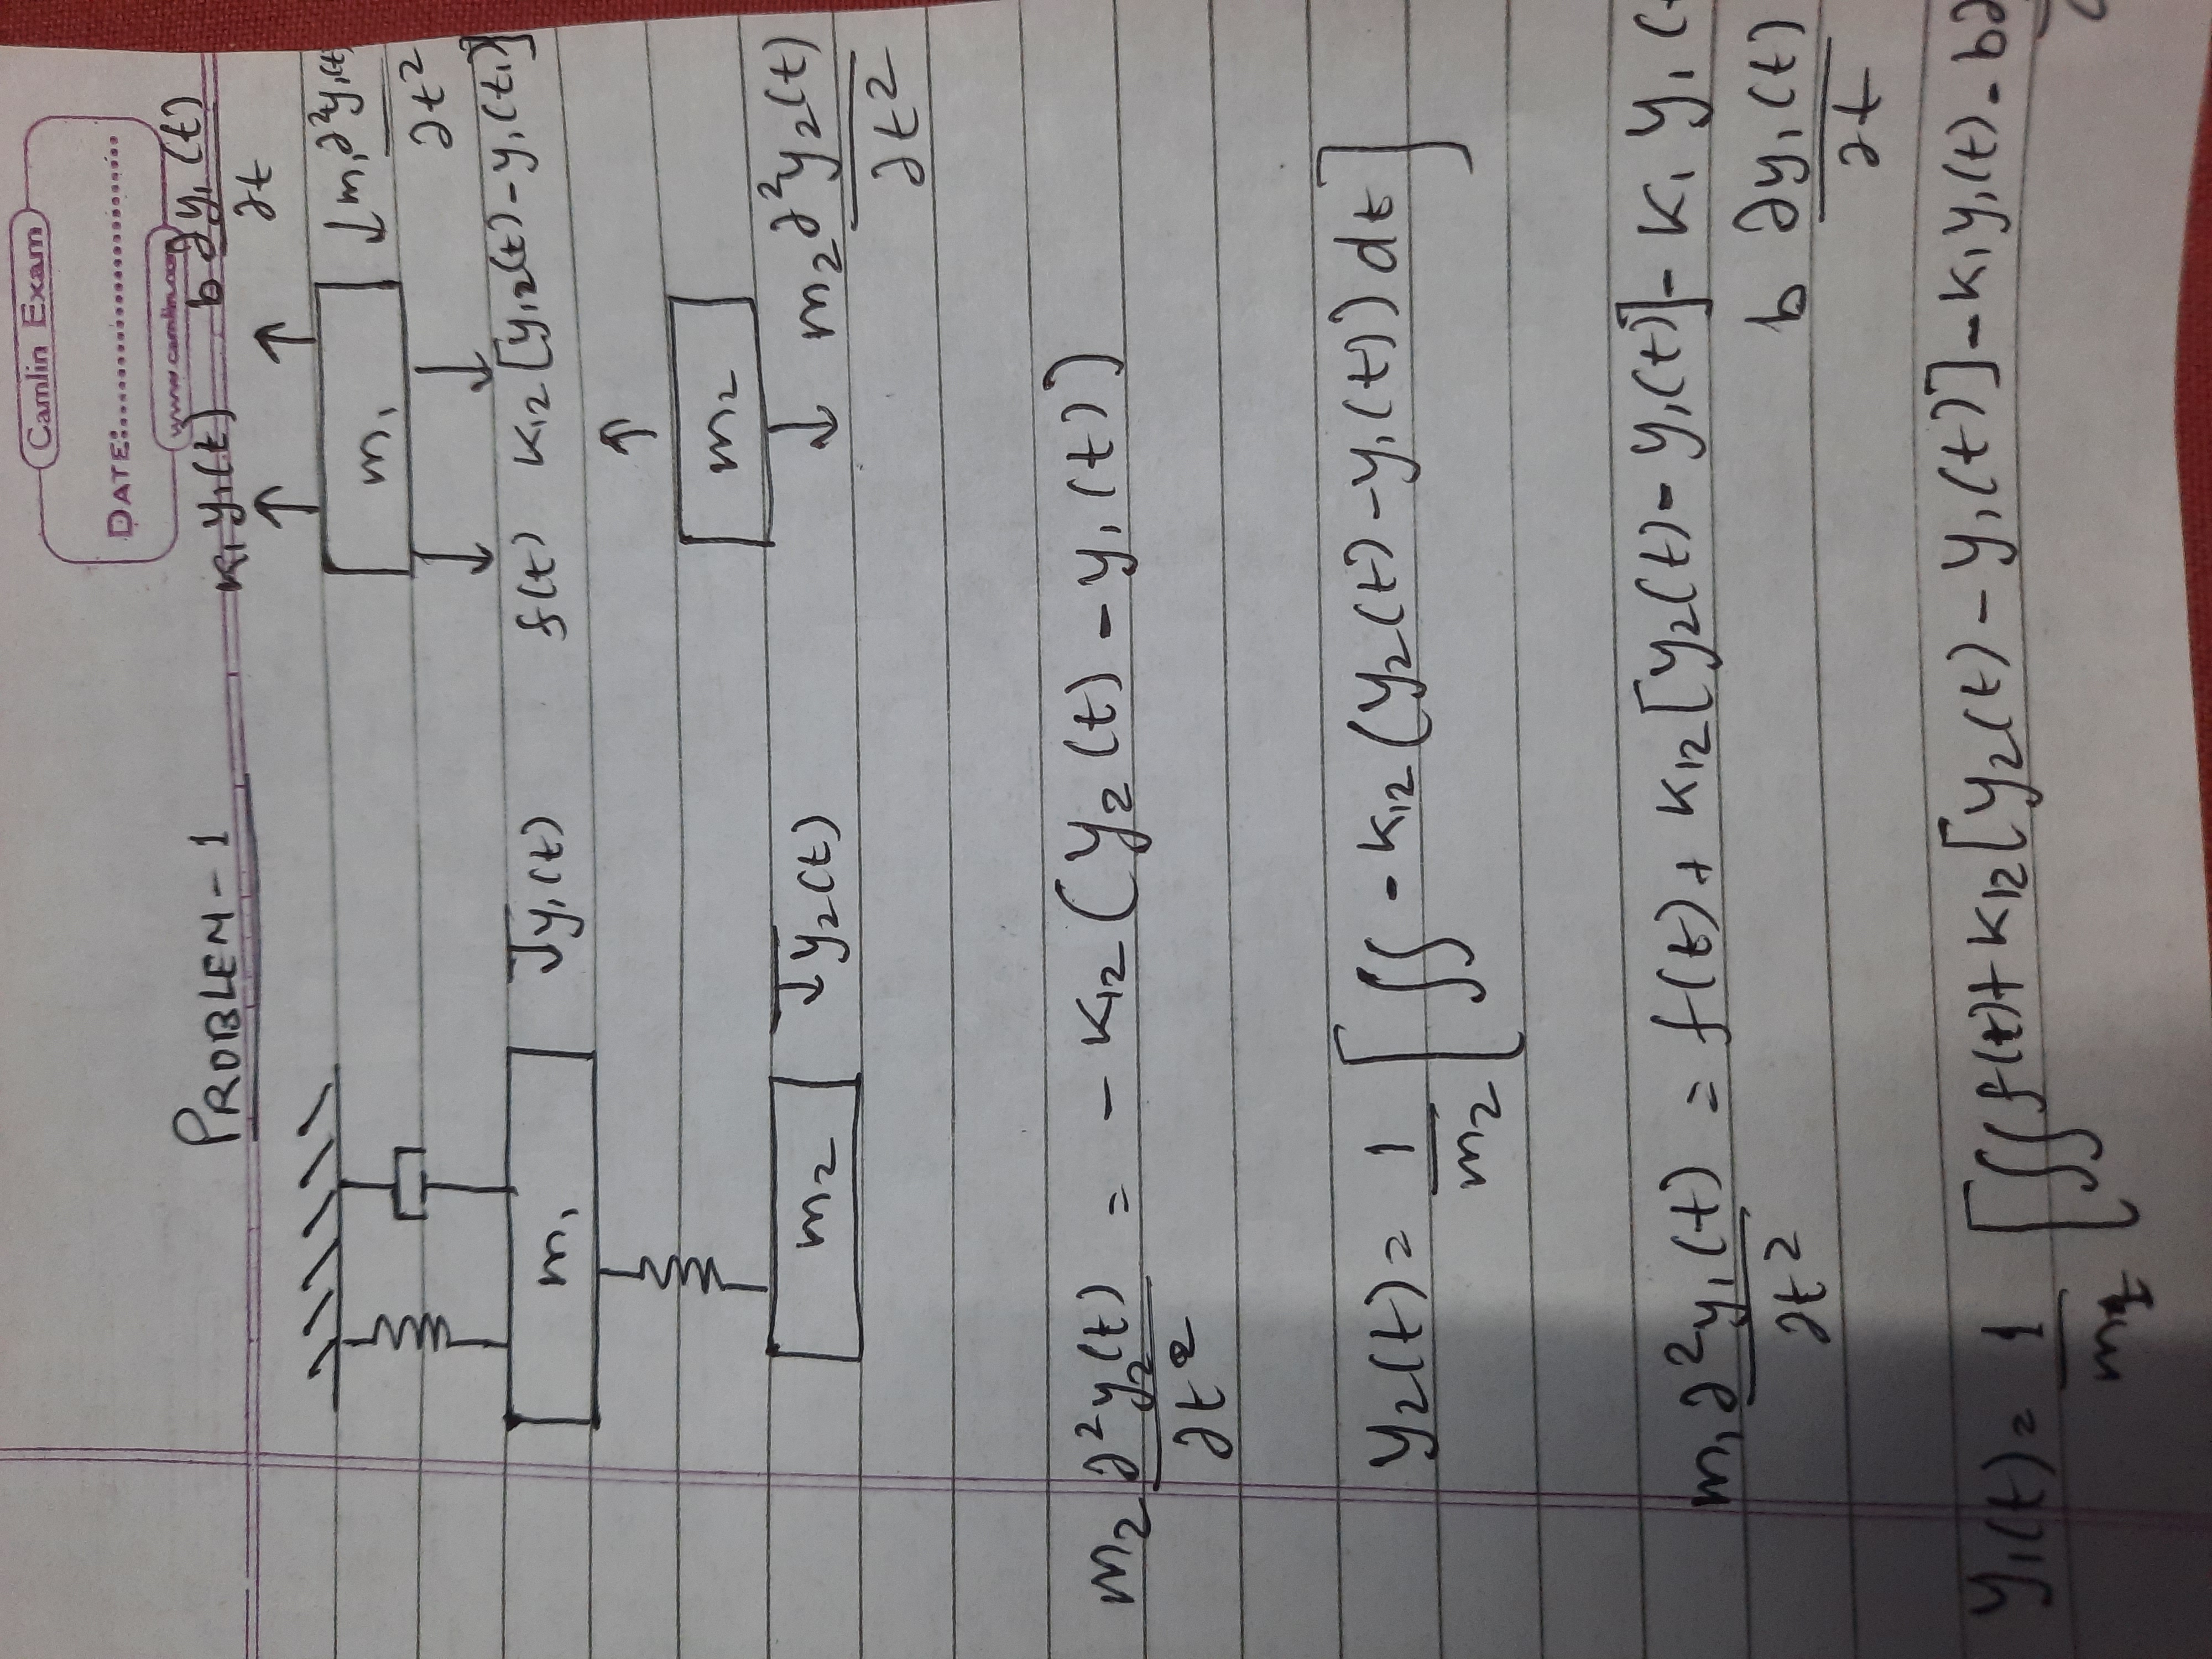 Camlin Exam
DATE:
www.camlin.com
PROBLEM-1
k₁ y₁(t) b ∂y₁(t)/∂t
m₁ ↓ m₁ ∂²y₁(t)/∂t²
f(t) k₁₂ [y₁₂(t) - y₁(t₁)]
m₁ y₁(t)
m₂
m₂ y₂(t) m₂ ∂²y₂(t)/∂t²
m₂ ∂²y₂(t)/∂t² = - k₁₂ (y₂(t) - y₁(t))
y₂(t) = 1/m₂ [∫∫ - k₁₂ (y₂(t) - y₁(t)) dt]
m₁ ∂²y₁(t)/∂t² = f(t) + k₁₂ [y₂(t) - y₁(t)] - k₁ y₁(
b ∂y₁(t)/∂t
y₁(t) = 1/m₁ [∫∫ f(t) + k₁₂ [y₂(t) - y₁(t)] - k₁ y₁(t) - b∂